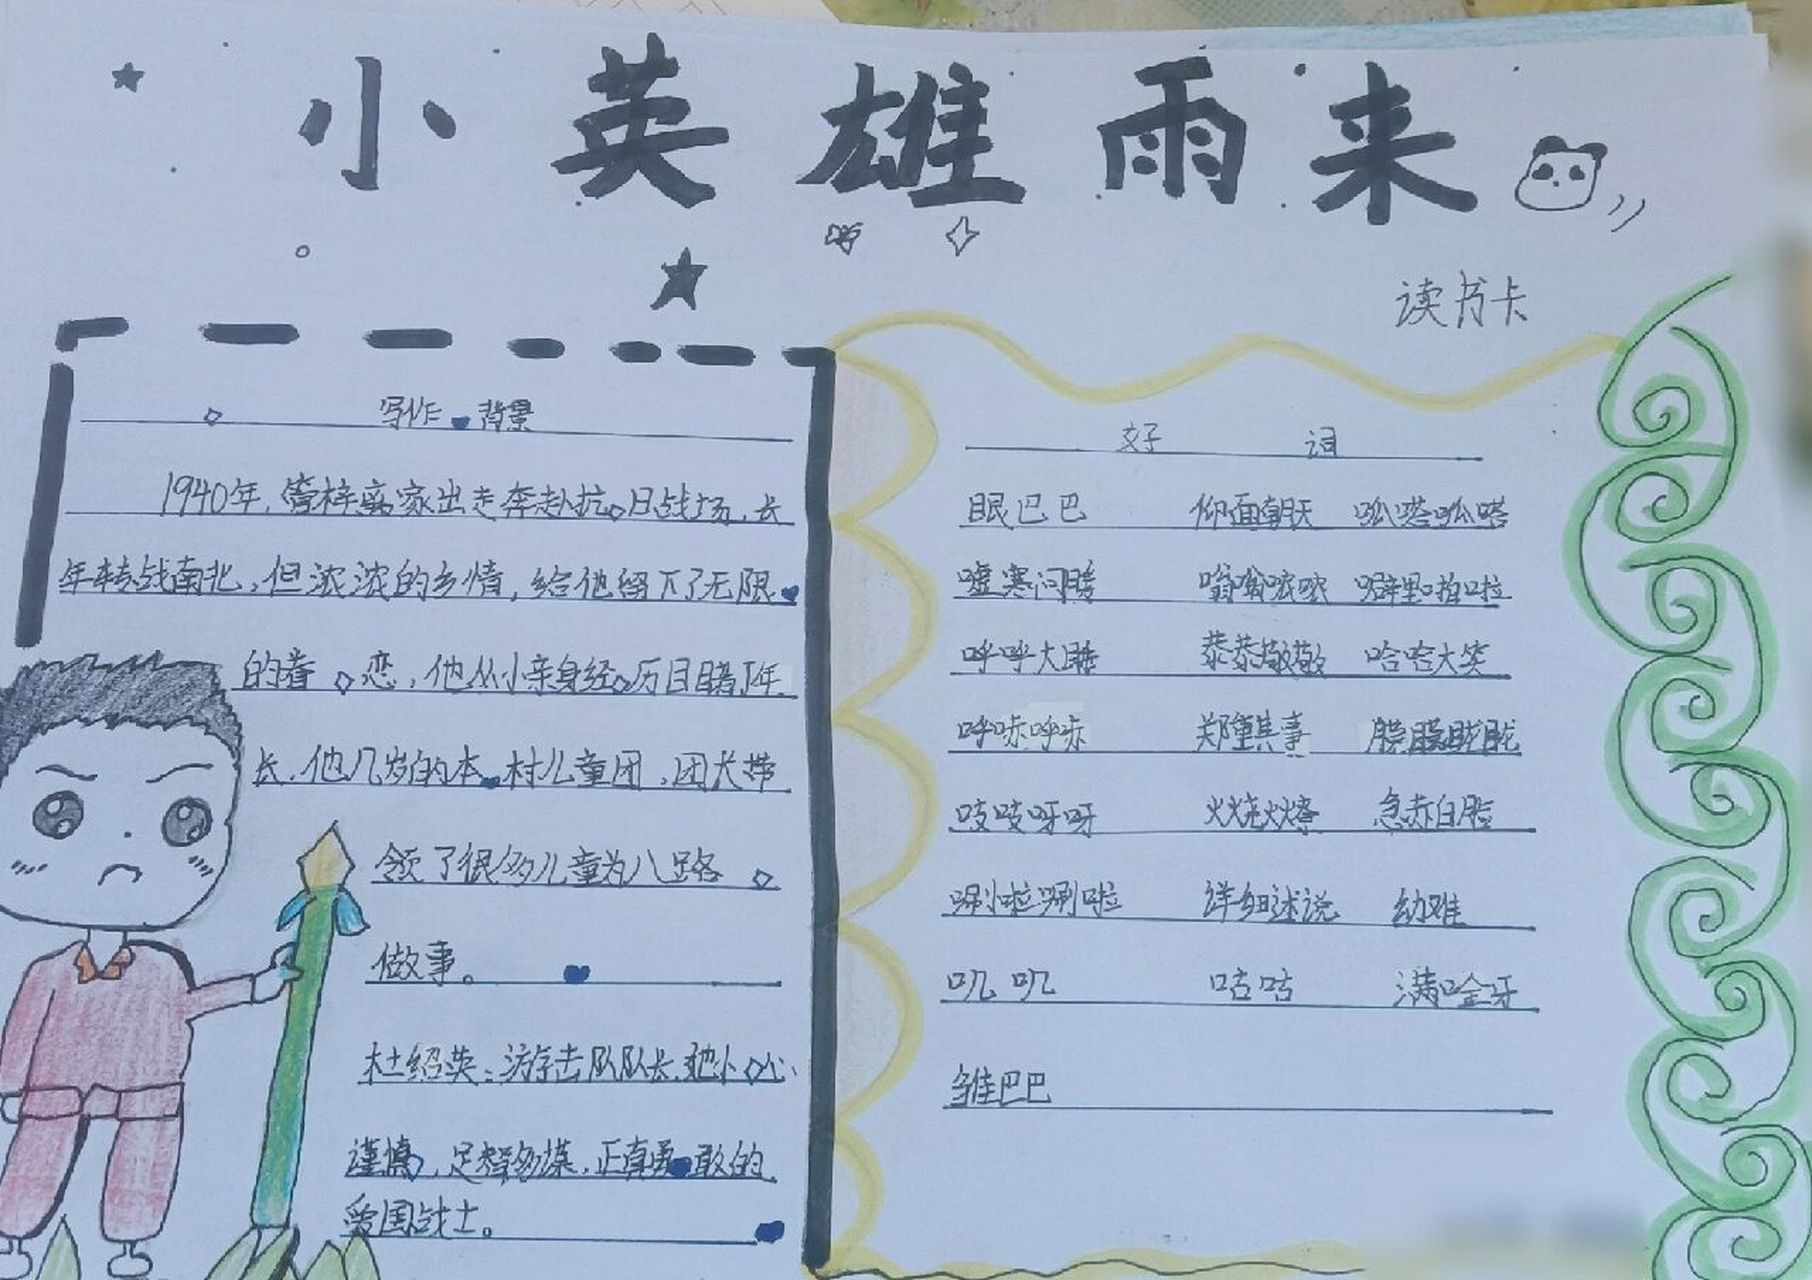 小英雄雨来
读书卡
写作背景
1940年,管桦离家出走奔赴抗日战场,长
年转战南北,但浓浓的乡情,给他留下了无限
的眷恋,他从小亲身经历目睹了年
长,他几岁的本村儿童团,团长带
领了很多儿童为八路
做事。
杜绍英:游击队队长,她小心、
谨慎,足智多谋,正直勇敢的
爱国战士。
好词
眼巴巴 仰面朝天 呱嗒呱嗒
嘘寒问暖 嗡嗡哝哝 噼里啪啦
呼呼大睡 恭恭敬敬 哈哈大笑
呼哧呼哧 郑重其事 朦朦胧胧
吱吱呀呀 火烧火燎 急赤白脸
唰啦唰啦 详细述说 幼雅
叽叽 咕咕 满口金牙
皱巴巴